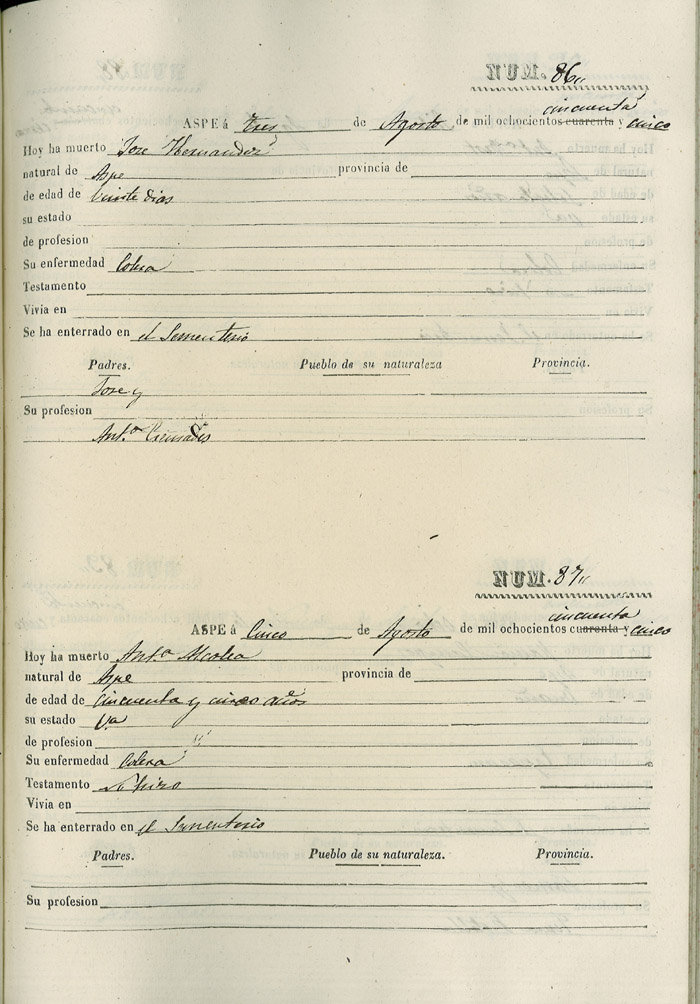 NUM. 86
cincuenta
ASPE á tres de Agosto de mil ochocientos cuarenta y cinco
Hoy ha muerto Jose Hernandez
natural de Aspe provincia de
de edad de veinte dias
su estado
de profesion
Su enfermedad
Testamento
Vivia en
Se ha enterrado en el Sementerio
Padres. Pueblo de su naturaleza Provincia.
Jose y
Su profesion
Ant.ª
NUM. 87
cincuenta
ASPE á Cinco de Agosto de mil ochocientos cuarenta y cinco
Hoy ha muerto Ant.ª Alcolea
natural de Aspe provincia de
de edad de cincuenta y cinco años
su estado Vª
de profesion
Su enfermedad Colera
Testamento no hizo
Vivia en
Se ha enterrado en el Sementerio
Padres. Pueblo de su naturaleza. Provincia.
Su profesion